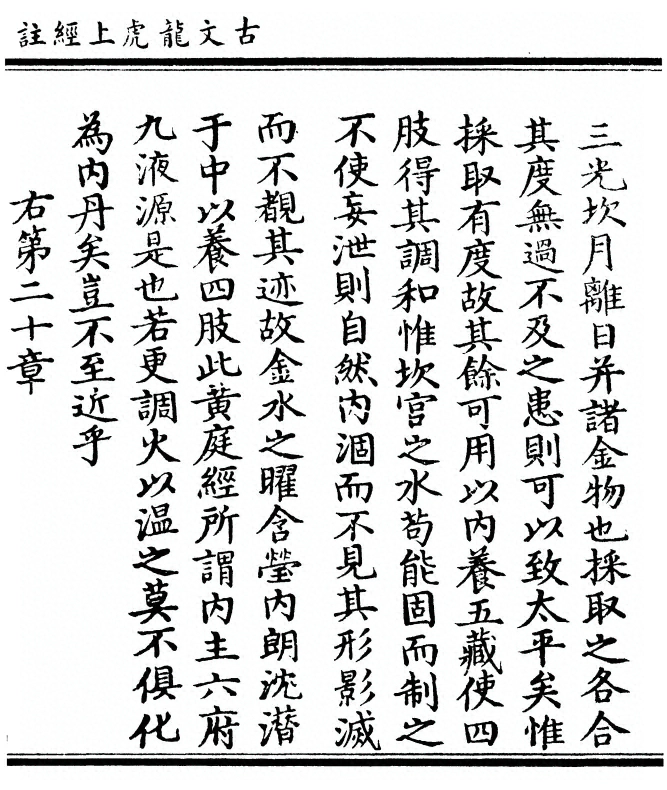 古文龍虎上經註
三光坎月離日并諸金物也採取之各合
其度無過不及之患則可以致太平矣惟
採取有度故其餘可用以内養五藏使四
肢得其調和惟坎宫之水苟能固而制之
不使妄泄則自然内涸而不見其形影滅
而不覩其迹故金水之曜含瑩内朗沈潛
于中以養四肢此黄庭經所謂内主六府
九液源是也若更調火以温之莫不俱化
為内丹矣豈不至近乎
右第二十章